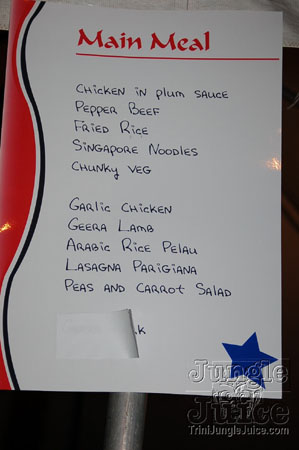 Main Meal
Chicken in plum sauce
Pepper Beef
Fried Rice
Singapore Noodles
Chunky veg
Garlic Chicken
Geera Lamb
Arabic Rice Pelau
Lasagna Parigiana
Peas and Carrot Salad
Jungle
Juice
TriniJungleJuice.com